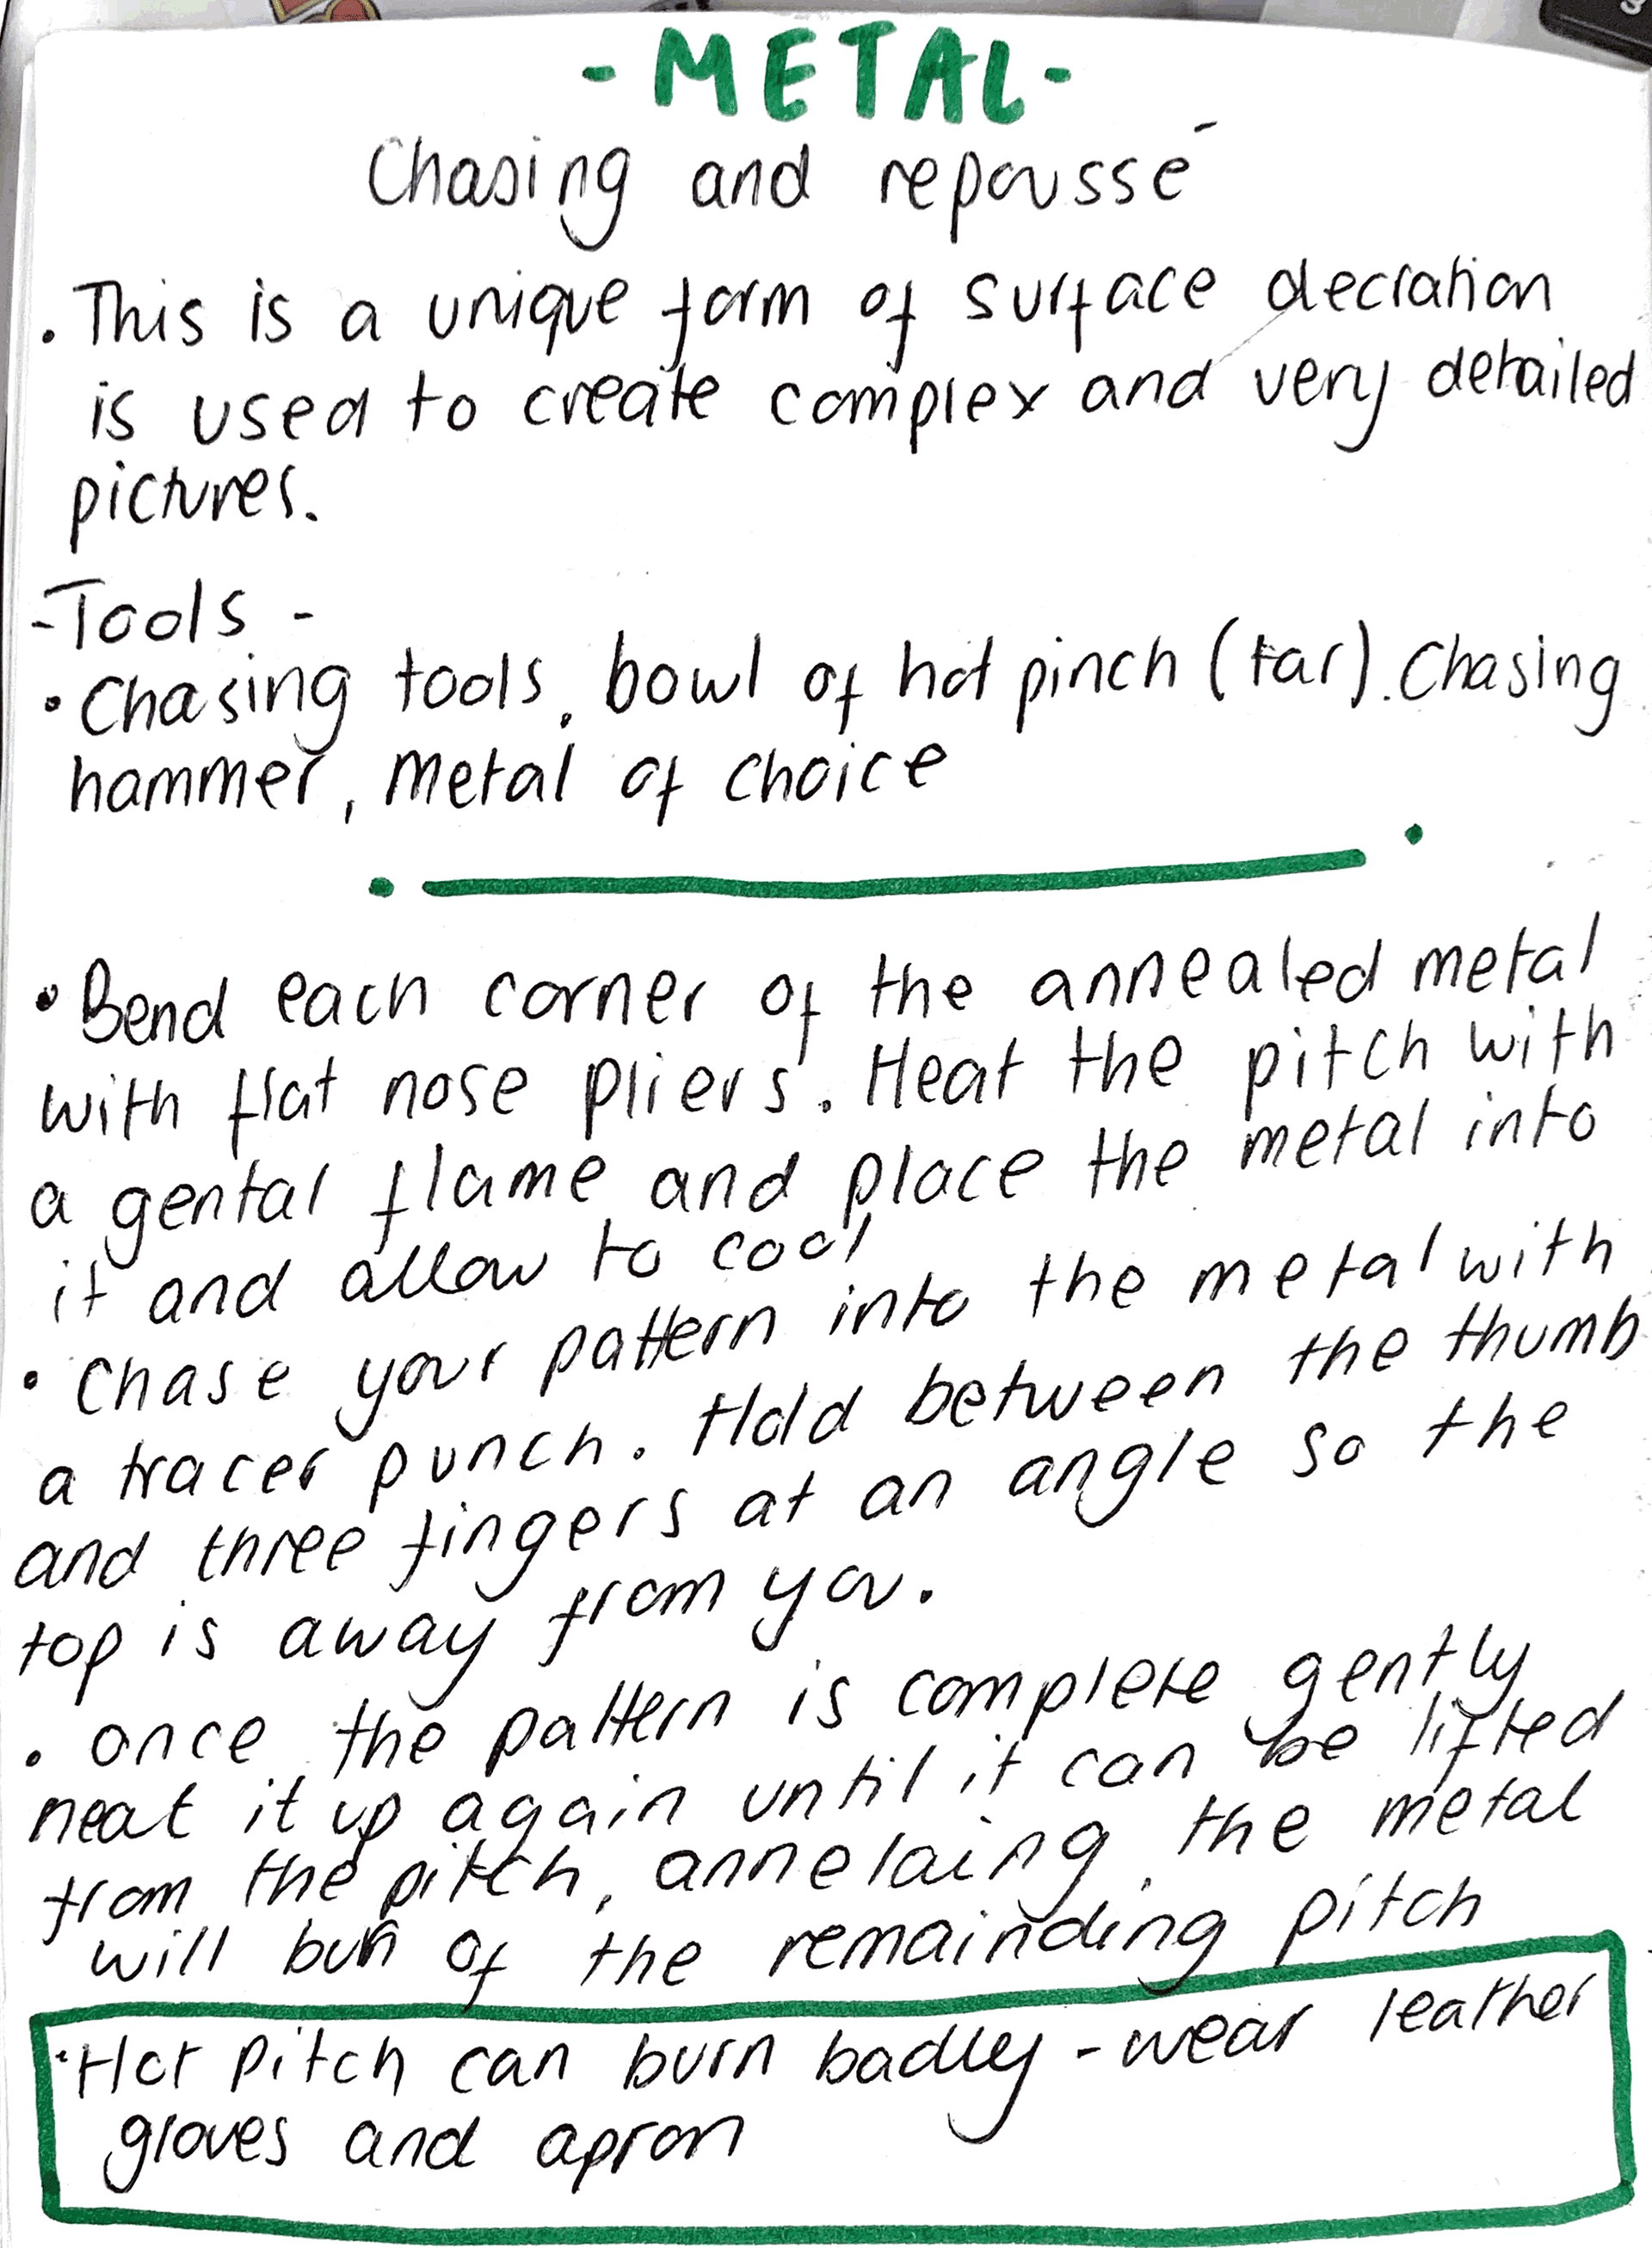 - METAL -
Chasing and repoussé
• This is a unique form of surface decration
is used to create complex and very detailed
pictures.
- Tools -
• Chasing tools, bowl of hot pinch (tar). Chasing
hammer, Metal of choice
• Bend each corner of the annealed metal
with flat nose pliers. Heat the pitch with
a gental flame and place the metal into
it and allow to cool
• Chase your pattern into the metal with
a tracer punch. Hold between the thumb
and three fingers at an angle so the
top is away from you.
• once the pattern is complete gently
heat it up again until it can be lifted
from the pitch, annelaing the metal
will bun of the remainding pitch
• Hot pitch can burn badly - wear leather
gloves and apron